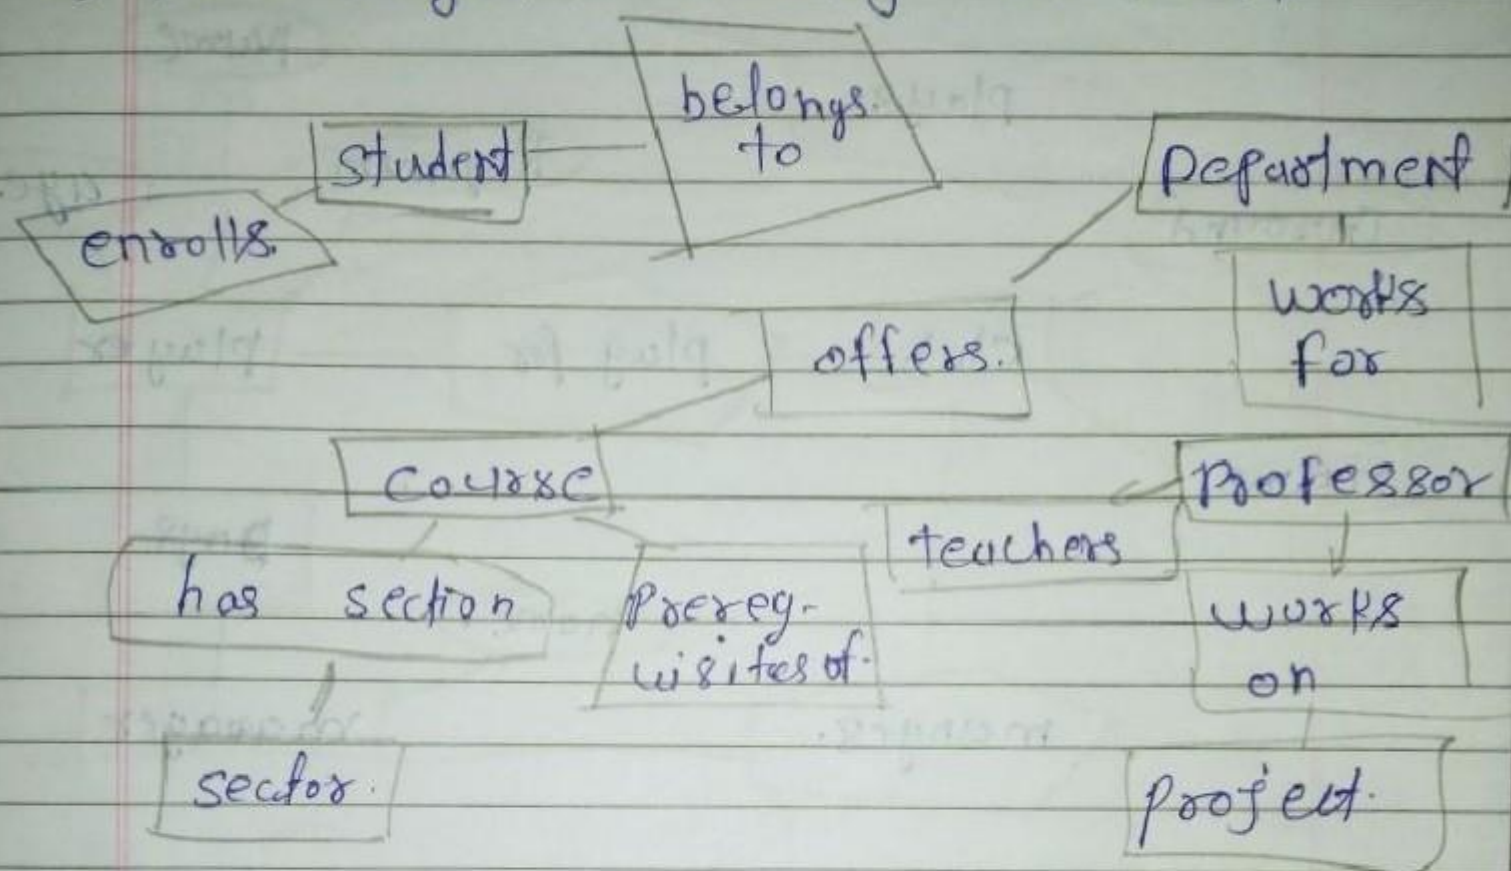 belongs
to
student
Department
enrolls.
works
for
offers.
course
Professor
teachers
has section
Prereq-
uisites of.
works
on
sector.
project.